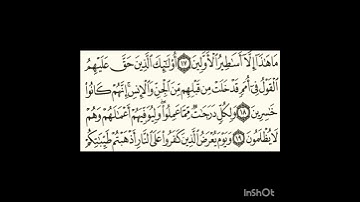 مَا هَٰذَآ إِلَّآ أَسَٰطِيرُ ٱلْأَوَّلِينَ ١٧ أُوْلَٰٓئِكَ ٱلَّذِينَ حَقَّ عَلَيْهِمُ
ٱلْقَوْلُ فِىٓ أُمَمٍ قَدْ خَلَتْ مِن قَبْلِهِم مِّنَ ٱلْجِنِّ وَٱلْإِنسِ إِنَّهُمْ كَانُوا۟
خَٰسِرِينَ ١٨ وَلِكُلٍّ دَرَجَٰتٌ مِّمَّا عَمِلُوا۟ وَلِيُوَفِّيَهُمْ أَعْمَٰلَهُمْ وَهُمْ
لَا يُظْلَمُونَ ١٩ وَيَوْمَ يُعْرَضُ ٱلَّذِينَ كَفَرُوا۟ عَلَى ٱلنَّارِ أَذْهَبْتُمْ طَيِّبَٰتِكُمْ
InShOt